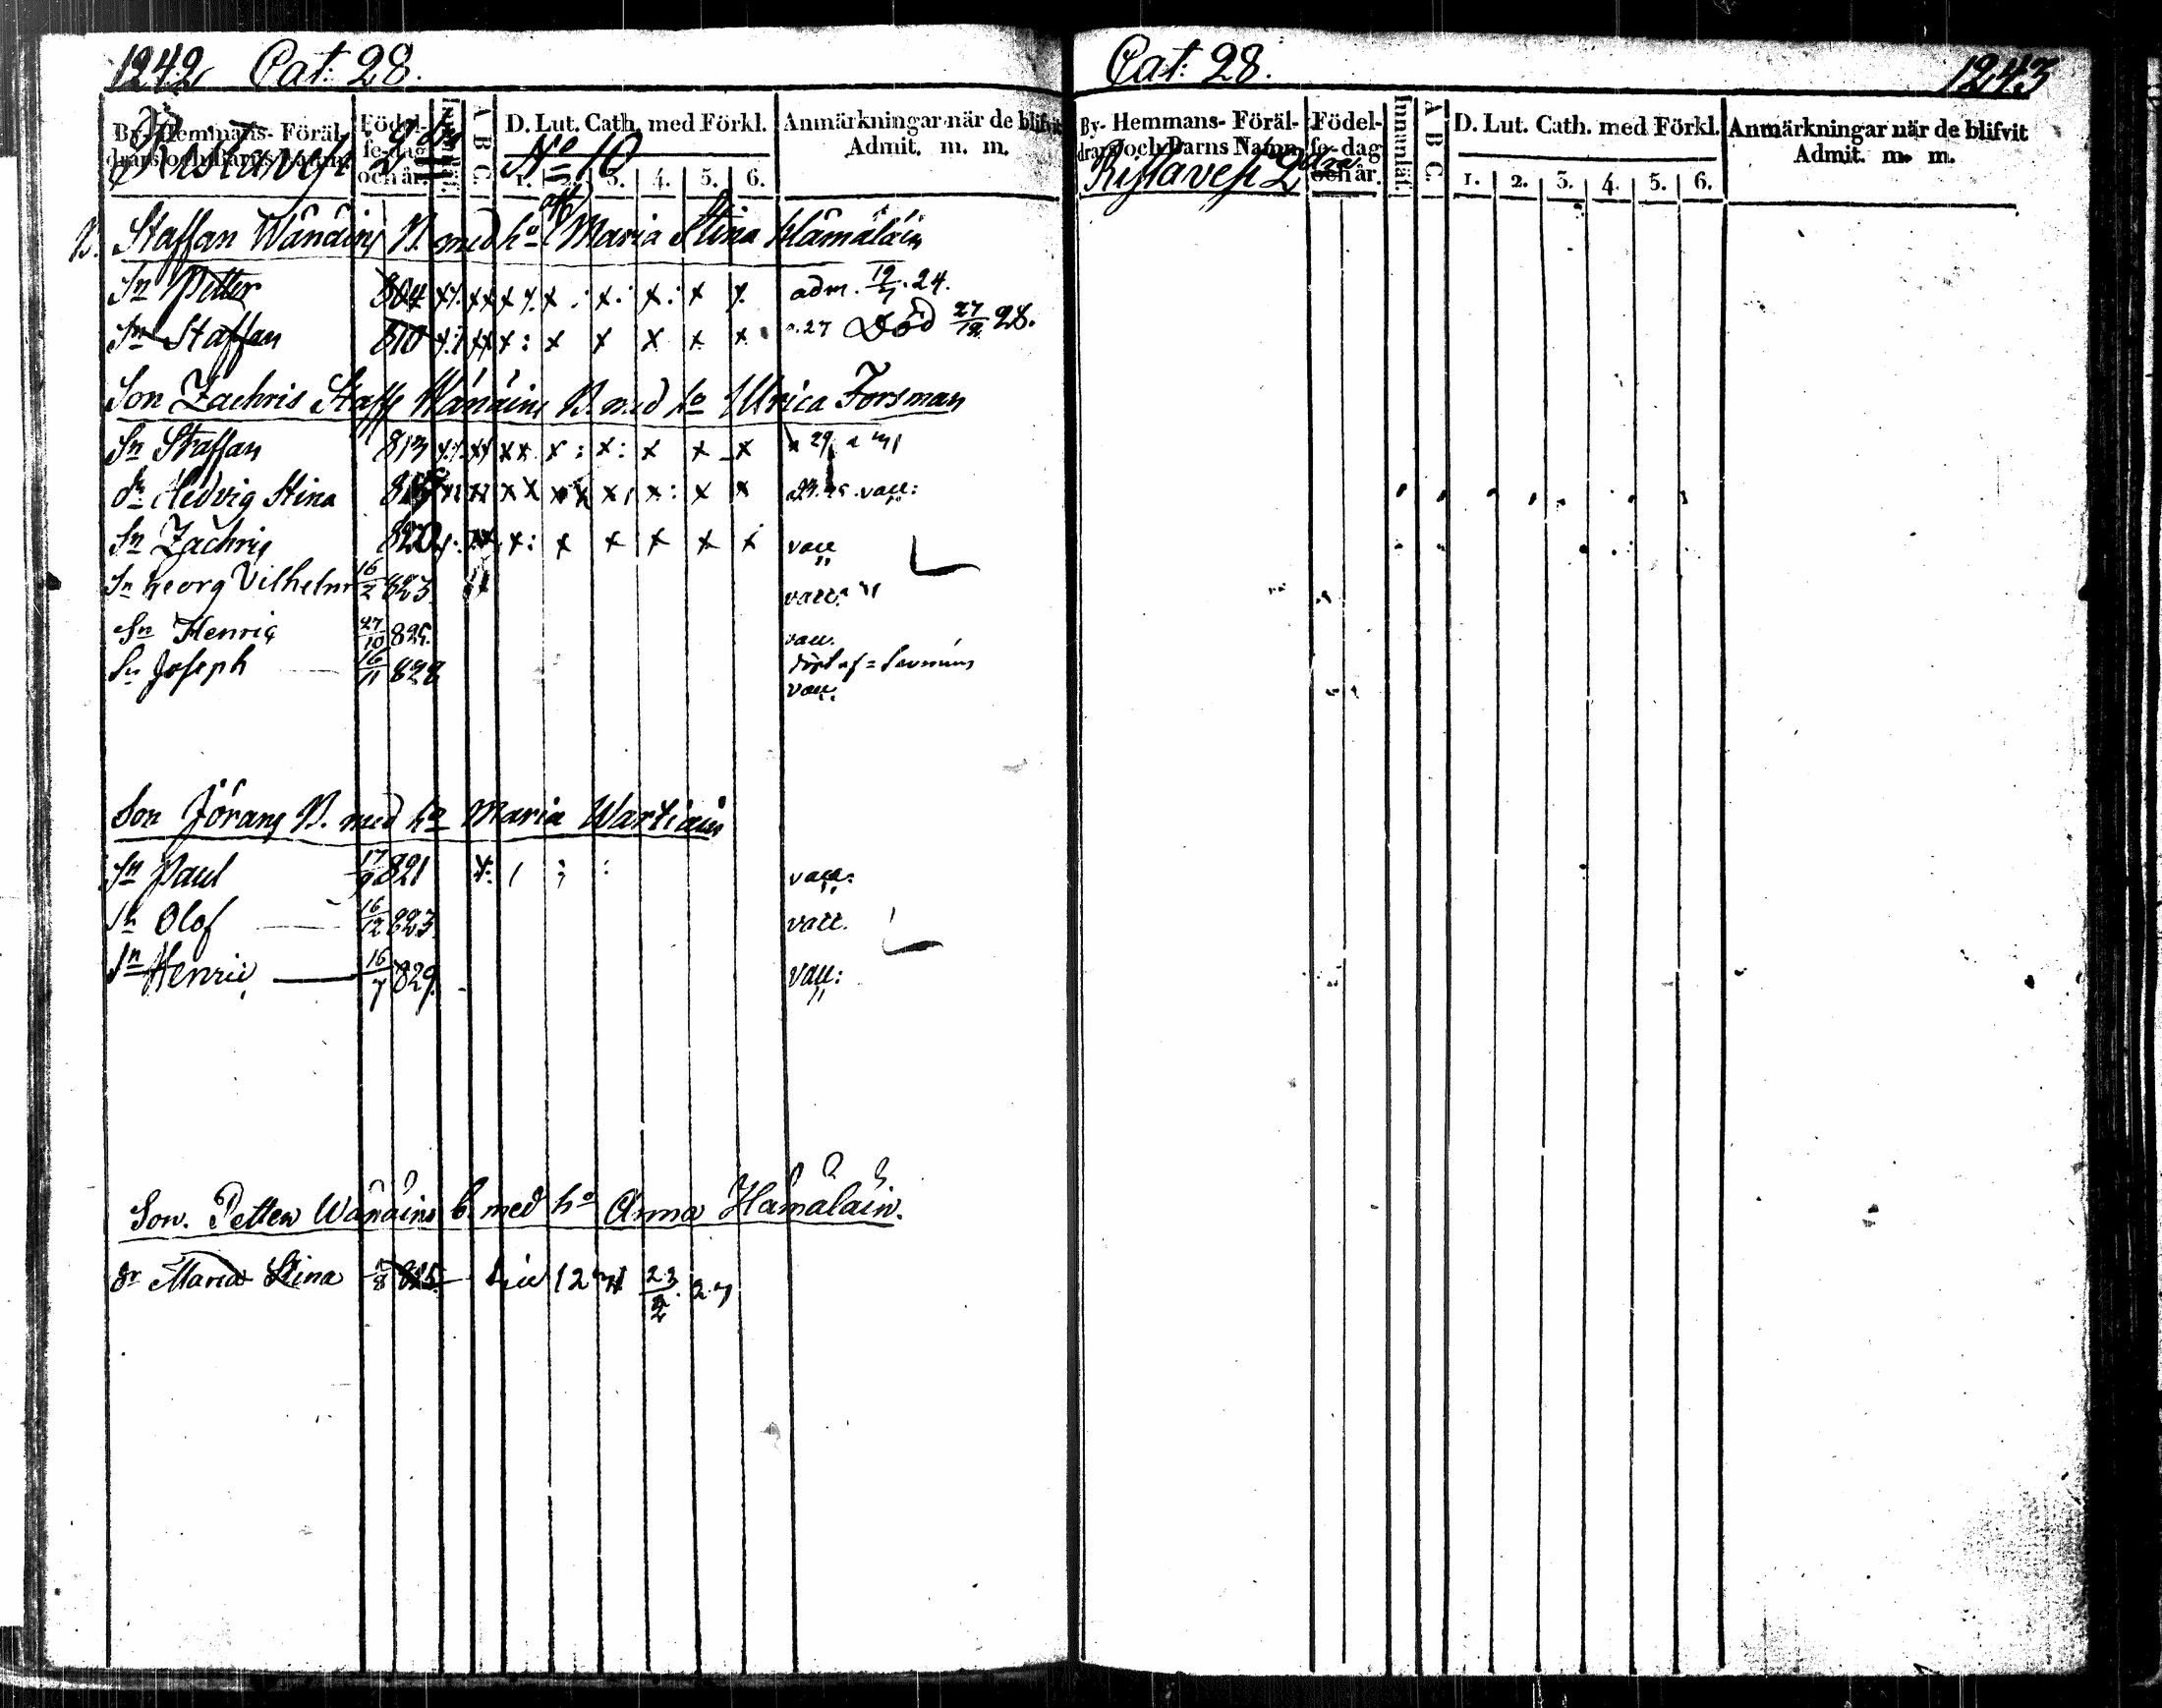 1242 Cat: 28.
By- Hemmans- Föräl- drars och Barns Namn.
Födel- se-dag och år.
Innanlät.
A B C.
D. Lut. Cath. med Förkl.
1. 2. 3. 4. 5. 6.
Anmärkningar när de blifvit Admit. m. m.
Ristavesi 2 dra No 10
B. Staffan Wänäin B. med ho Maria Stina Hämäläin
Sn Petter 804 x x x x x x x adm. 12/7. 24.
Sn Staffan 810 x x x x x x x x . 27 Död 27/12 28.
Son Zachris Staff Wänäin B. med ho Ulrica Forsman
Sn Staffan 813 x x x x x x x x
dr Hedvig Stina x x x x x x x x vacc:
Sn Zachris 820 x x x x x x vacc
Sn Georg Vilhelm 16/2 823 vacc:
Sn Henric 27/10 825. vacc.
Sn Joseph 16/11 828
vacc:
Son Jöran B. med ho Maria Wartiain
Sn Paul 17/9 821 x: vacc:
Sn Olof 16/12 823 vacc.
Sn Henric 16/7 829. vacc:
Son. Petter Wänäin b. med ho Anna Hämäläin.
dr Maria Stina 1/8 825. 23/2. 27
Cat: 28. 1243
By- Hemmans- Föräl- drars och Barns Namn.
Födel- se-dag och år.
Innanlät.
A B C.
D. Lut. Cath. med Förkl.
1. 2. 3. 4. 5. 6.
Anmärkningar när de blifvit Admit. m. m.
Ristavesi 2 dra